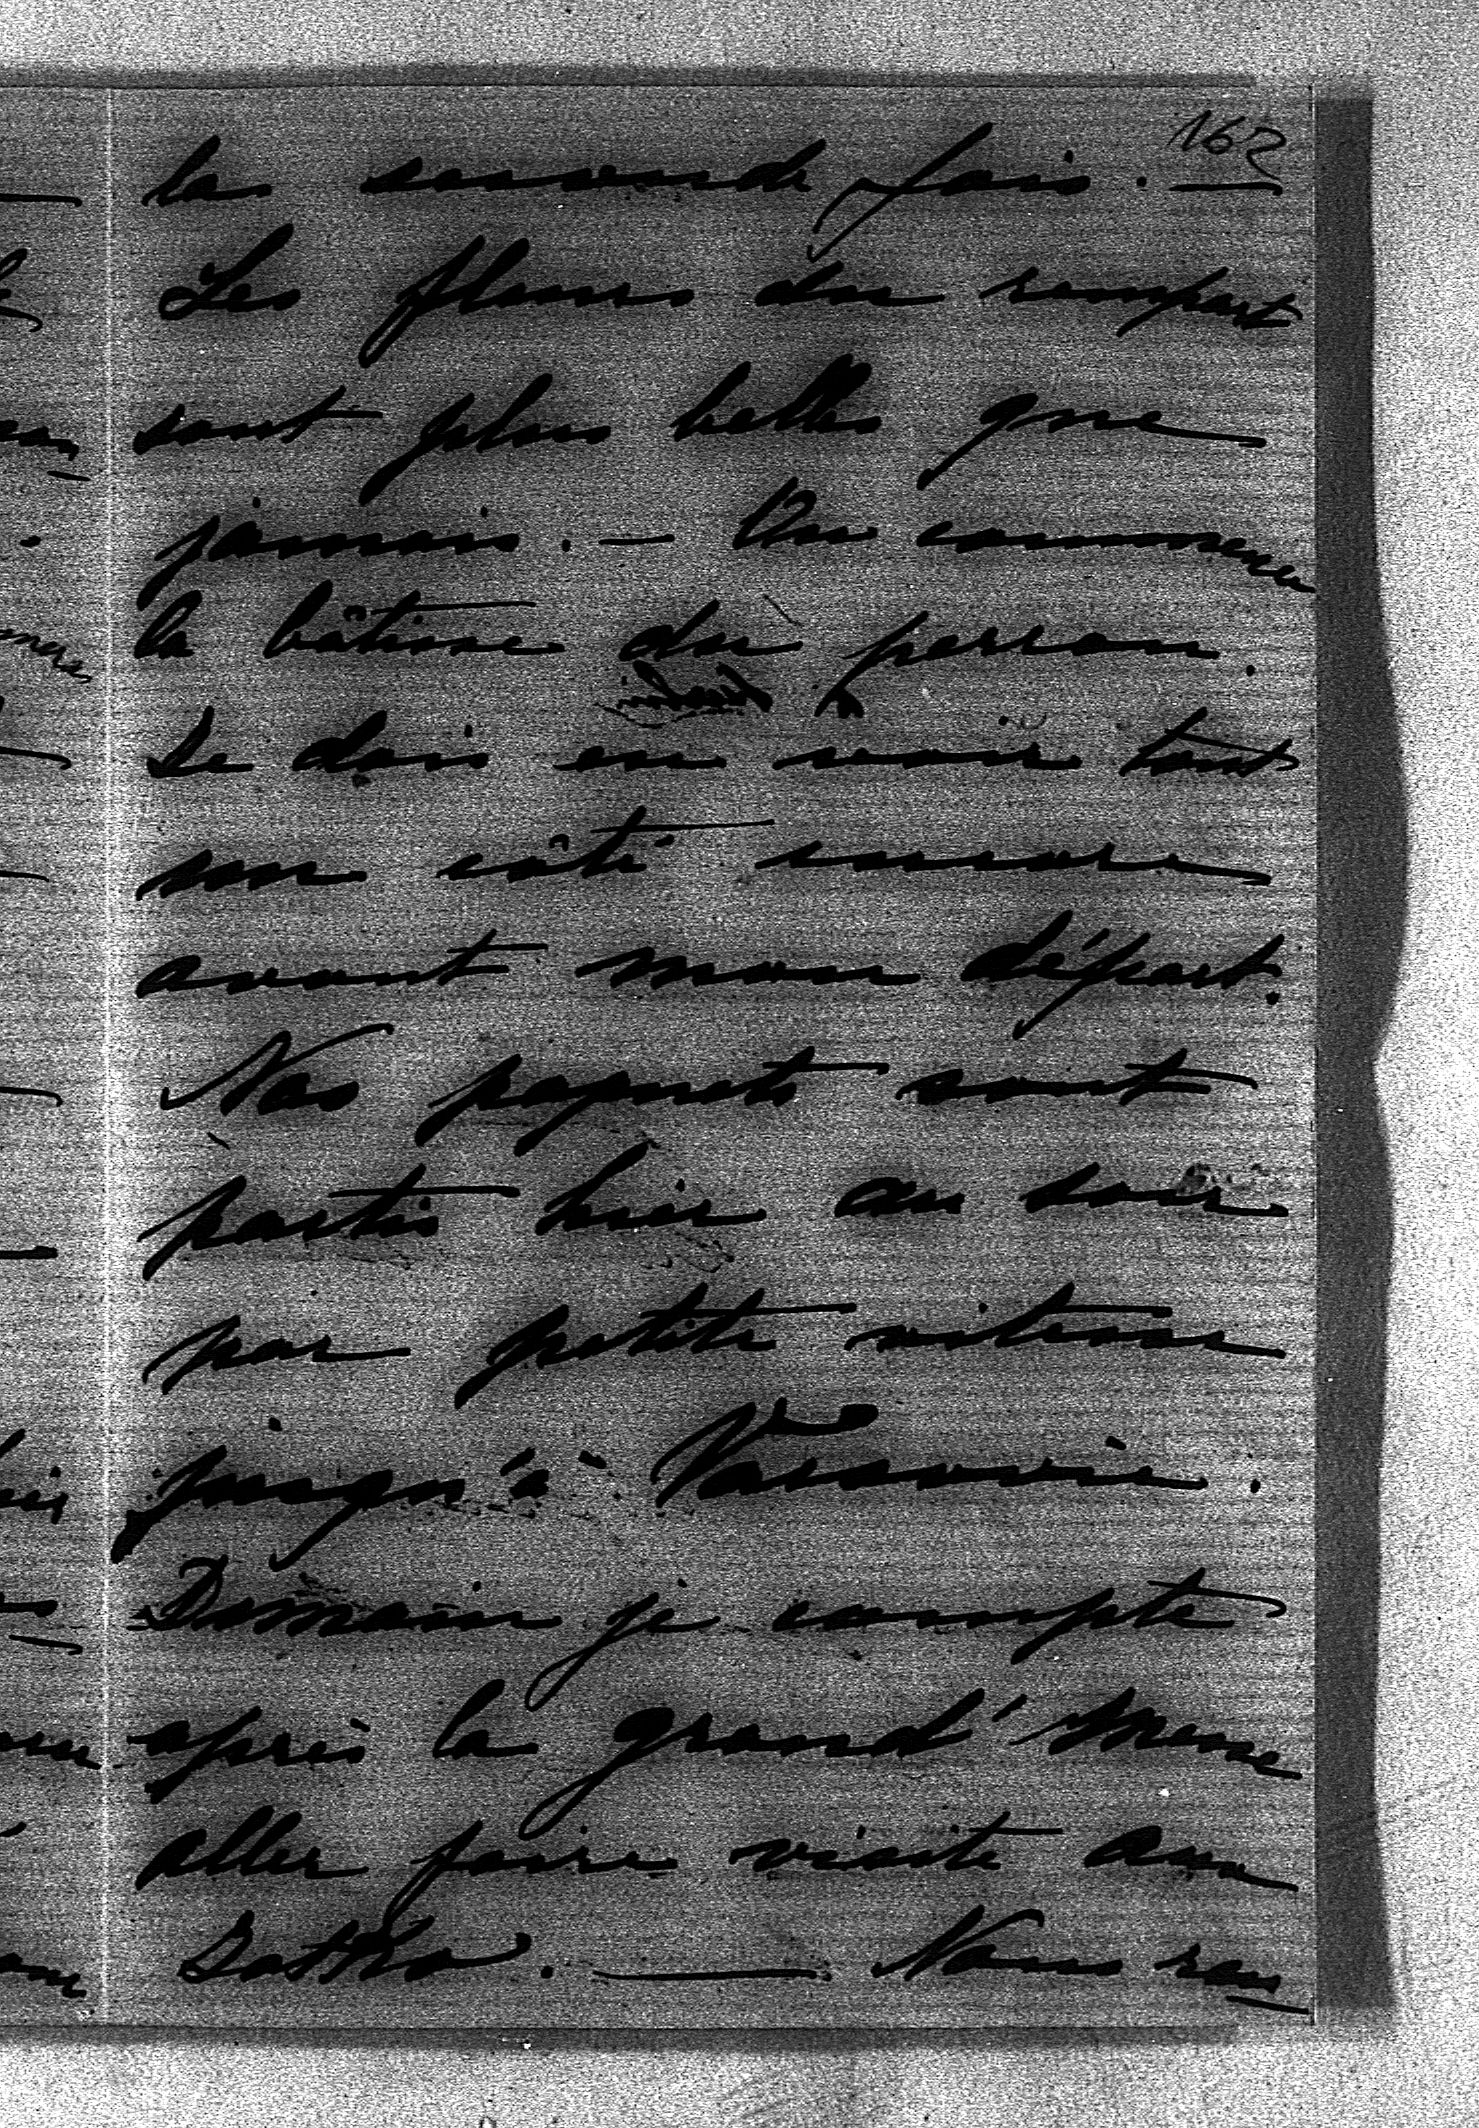 162
la seconde fois. —
Les fleurs du rempart
sont plus belles que
jamais. — On commence
la bâtisse du perron.
Je dois en avoir tout
un côté encore
avant mon départ.
Nos paquets sont
partis hier au soir
par petite vitesse
jusqu'à Varsovie.
Demain je compte
après la grand' Messe
aller faire visite aux
. — Nous ren